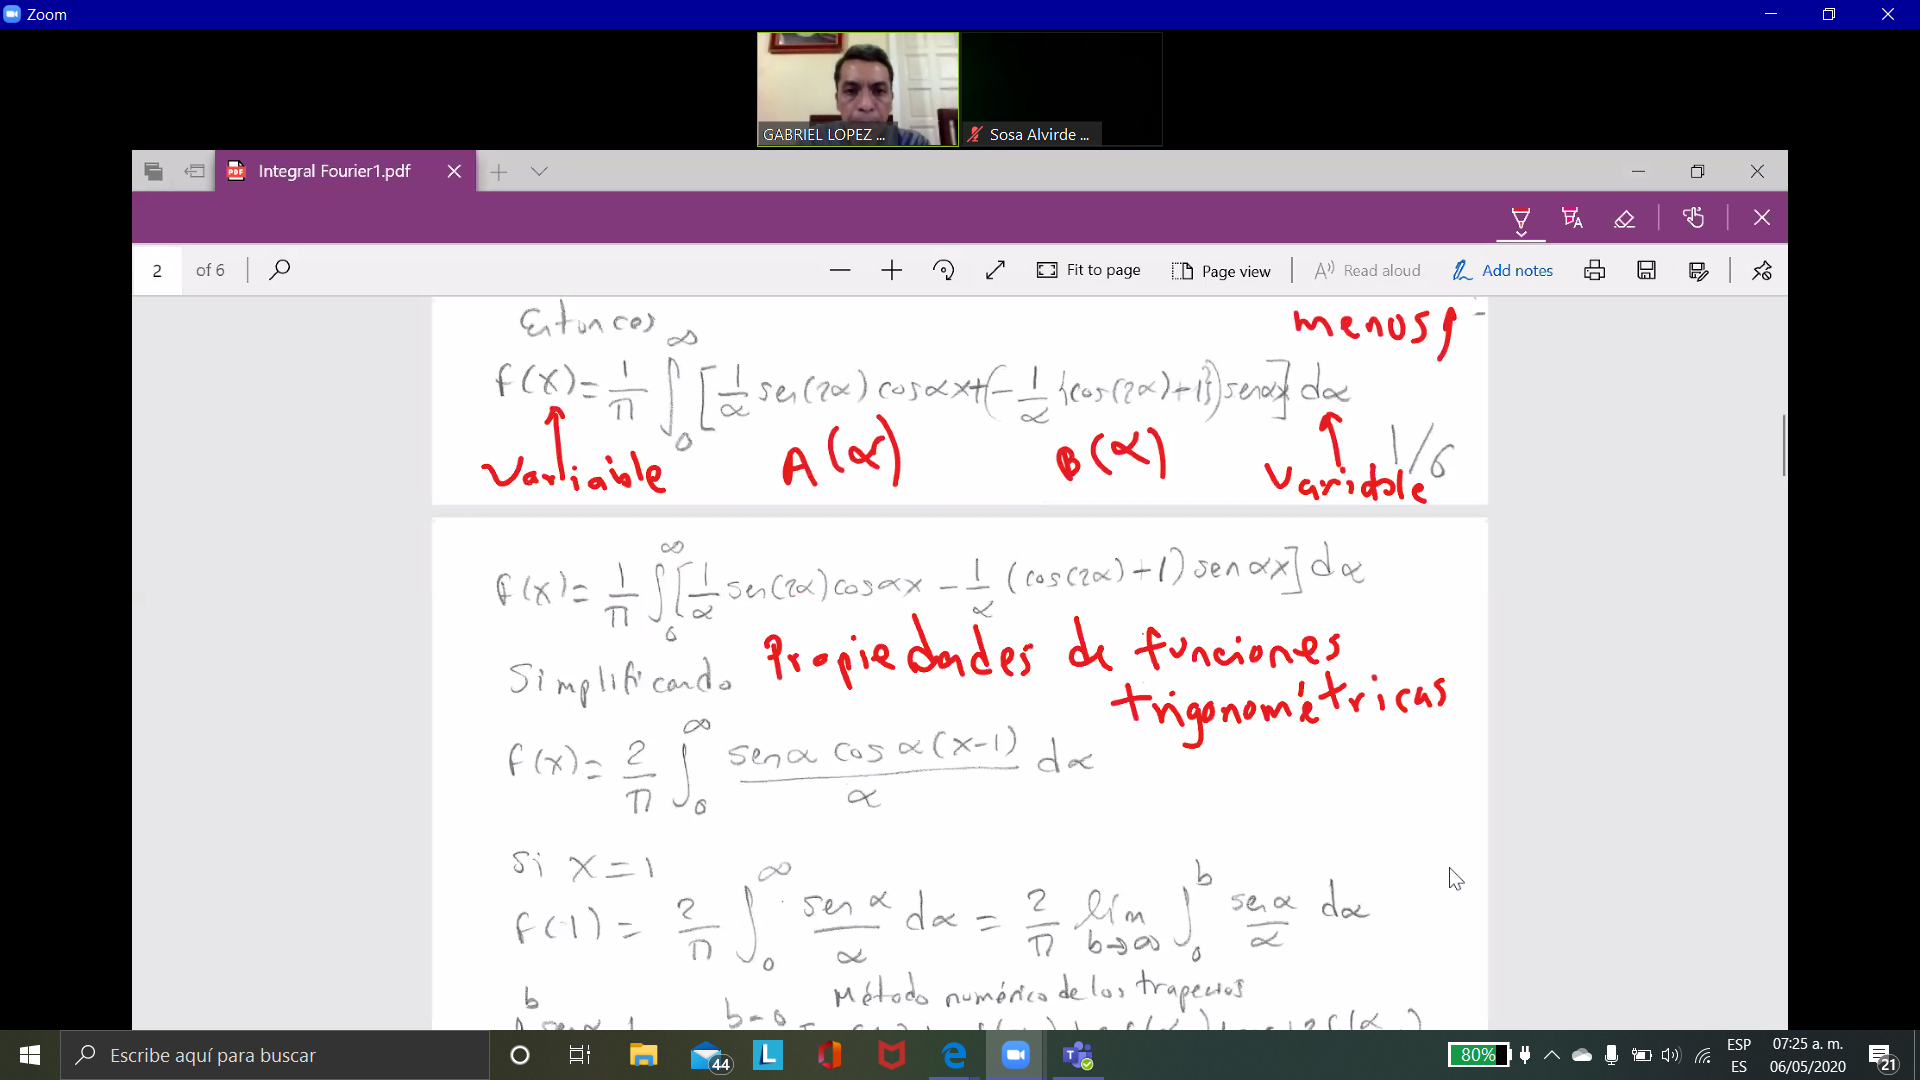 Zoom
GABRIEL LOPEZ ...
Sosa Alvirde ...
Integral Fourier1.pdf
2 of 6
Fit to page
Page view
Read aloud
Add notes
Entonces
menos
f(x)= 1/π ∫₀^∞ [1/α sen(2α) cosαx+(-1/α {cos(2α)+1})senαx] dα
Variable
A(α)
B(α)
Variable
1/6
f(x)= 1/π ∫₀^∞ [1/α sen(2α)cosαx - 1/α (cos(2α)+1) senαx] dα
Simplificando
Propiedades de funciones
trigonométricas
f(x)= 2/π ∫₀^∞ senα cosα(x-1)/α dα
Si x=1
f(1) = 2/π ∫₀^∞ sen α/α dα = 2/π lím b→∞ ∫₀^b senα/α dα
Método numérico de los trapecios
b
b-0
Escribe aquí para buscar
44
80%
ESP
ES
07:25 a. m.
06/05/2020
21